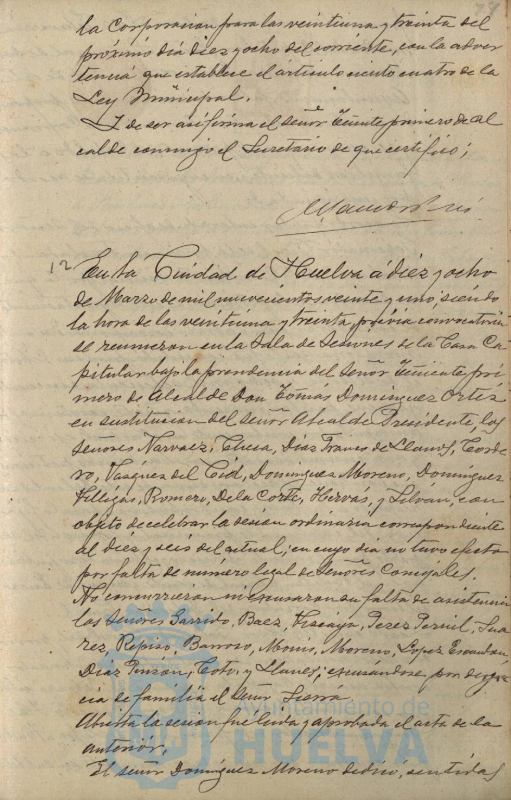 79
la Corporacion para las veintiuna y treinta del
próximo dia diez y ocho del corriente, con la adver
tencia que establece el artículo ciento cuatro de la
Ley Municipal.
Y de ser asi firma el señor Teniente primero de Al
calde conmigo el Secretario de que certifico;
12
En la Ciudad de Huelva á diez y ocho
de Marzo de mil nuevecientos veinte y uno, siendo
la hora de las veintiuna y treinta prévia convocatoria
se reunieron en la Sala de Sesiones de la Casa Ca
pitular bajo la presidencia del Señor Teniente pri
mero de Alcalde Don Tomás Dominguez Ortiz
en sustitucion del señor Alcalde Presidente, los
Señores Narvaez, Checa, Diaz Franco de Llanos, Corde
ro, Vazquez del Cid, Dominguez Moreno, Dominguez
Villegas, Romero, De la Corte, Hervas, y Silvan, con
objeto de celebrar la sesion ordinaria correspondiente
al diez y seis del actual, en cuyo dia no tuvo efecto
por falta de número legal de Señores Concejales.
No concurrieron ni escusaron su falta de asistencia
los Señores Garrido, Baez, Vizcaya, Perez Pernil, Sua
rez, Repiso, Barroso, Monis, Moreno, Lopez Escandon,
Diaz Pinzon, Toto, y Llanes; escusándose por desgra
cia de familia el Señor Sierra
Abierta la sesion fue leida y aprobada el acta de la
anteriór.
El señor Dominguez Moreno dedicó, sentidas
Ayuntamiento de
HUELVA